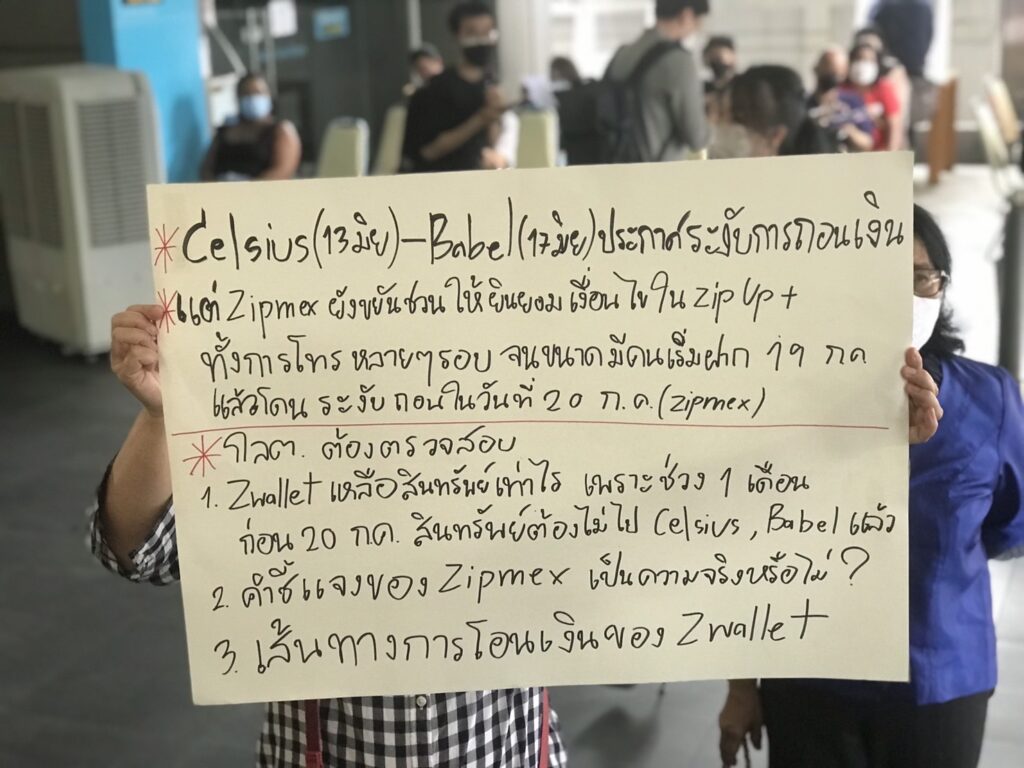 * Celsius(13มิย)-Babel(17มิย)ประกาศระงับการถอนเงิน
* แต่ Zipmex ยังขยันชวนให้ยินยอมเงื่อนไขใน Zip Up+
ทั้งการโทร หลายๆรอบ จนขนาดมีคนเริ่มฝาก 19 กค
แล้วโดน ระงับ ถอนในวันที่ 20 ก.ค.(zipmex)
* กลต. ต้องตรวจสอบ
1. Zwallet เหลือสินทรัพย์เท่าไร เพราะช่วง 1 เดือน
ก่อน 20 กค. สินทรัพย์ต้องไม่ไป Celsius, Babel แล้ว
2. คำชี้แจงของ Zipmex เป็นความจริงหรือไม่?
3. เส้นทางการโอนเงินของ Zwallet